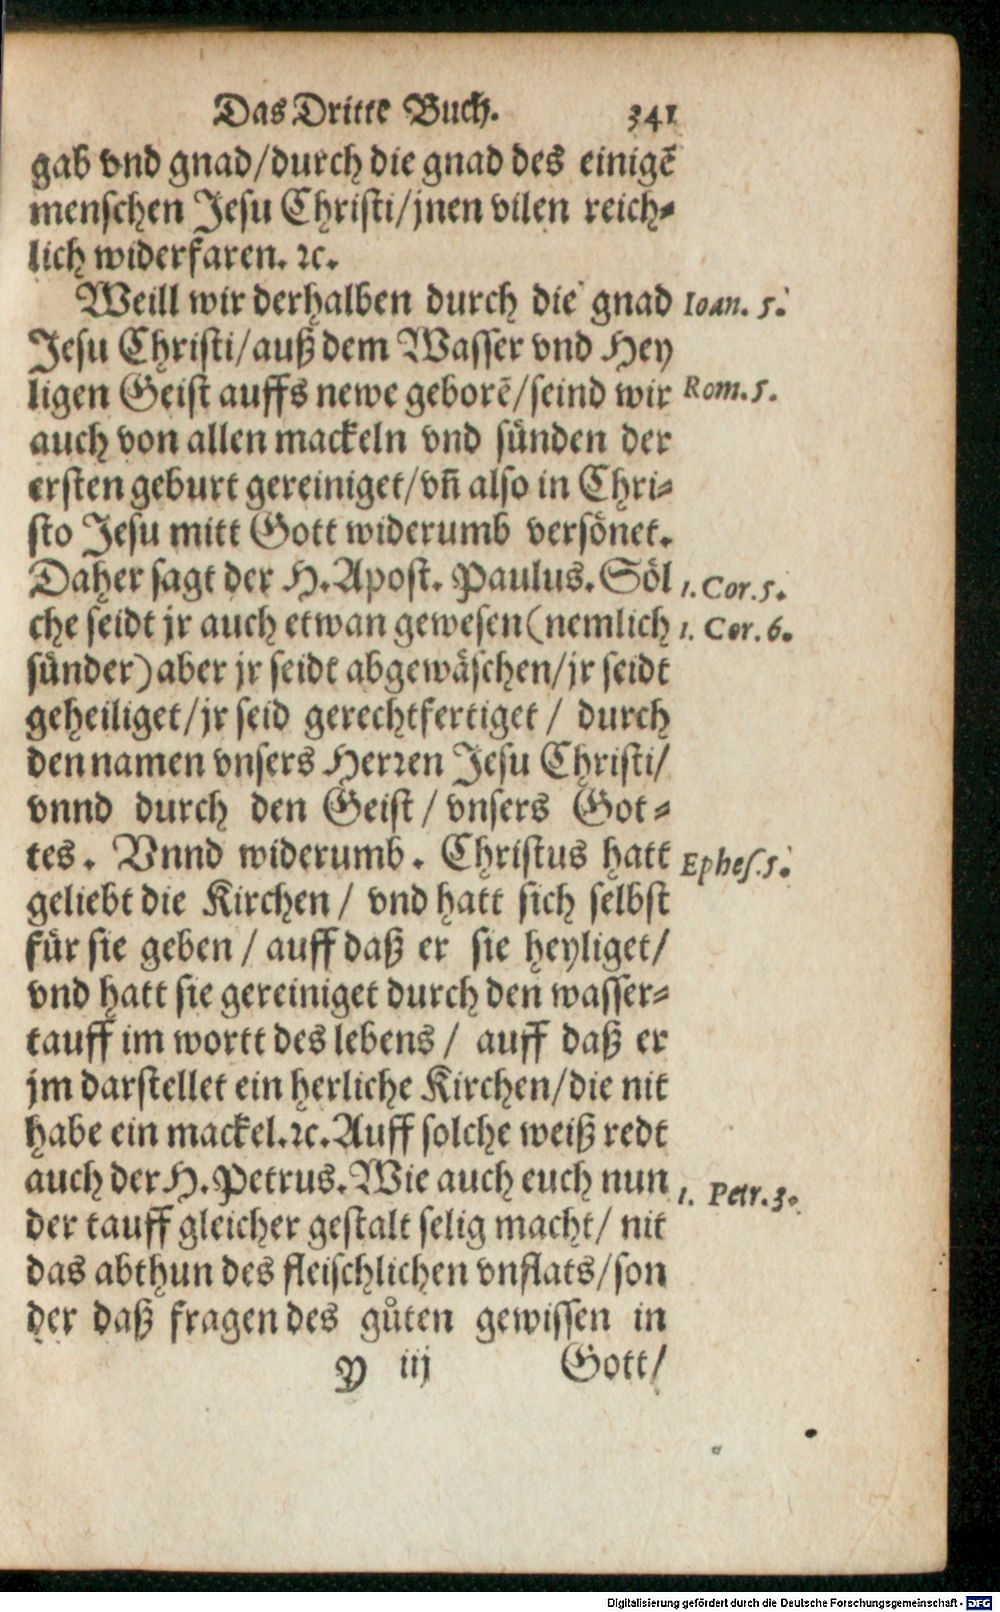 Das Dritte Buch. 341
gab vnd gnad/durch die gnad des einigē
menschen Jesu Christi/jnen vilen reich-
lich widerfaren. ꝛc.
Weill wir derhalben durch die gnad Ioan. 5.
Jesu Christi/auß dem Wasser vnd Hey
ligen Geist auffs newe geborē/seind wir Rom. 5.
auch von allen mackeln vnd sünden der
ersten geburt gereiniget/vñ also in Chri-
sto Jesu mitt Gott widerumb versönet.
Daher sagt der H. Apost. Paulus. Söl 1. Cor. 5.
che seidt jr auch etwan gewesen(nemlich 1. Cor. 6.
sünder)aber jr seidt abgewäschen/jr seidt
geheiliget/jr seid gerechtfertiget/ durch
den namen vnsers Herꝛen Jesu Christi/
vnnd durch den Geist/ vnsers Got-
tes. Vnnd widerumb. Christus hatt Ephes. 5.
geliebt die Kirchen/ vnd hatt sich selbst
für sie geben/ auff daß er sie heyliget/
vnd hatt sie gereiniget durch den wasser-
tauff im wortt des lebens/ auff daß er
jm darstellet ein herliche Kirchen/die nit
habe ein mackel.ꝛc. Auff solche weiß redt
auch der H. Petrus. Wie auch euch nun 1. Petr. 3.
der tauff gleicher gestalt selig macht/ nit
das abthun des fleischlichen vnflats/son
der daß fragen des gůten gewissen in
Y iij Gott/
Digitalisierung gefördert durch die Deutsche Forschungsgemeinschaft - DFG